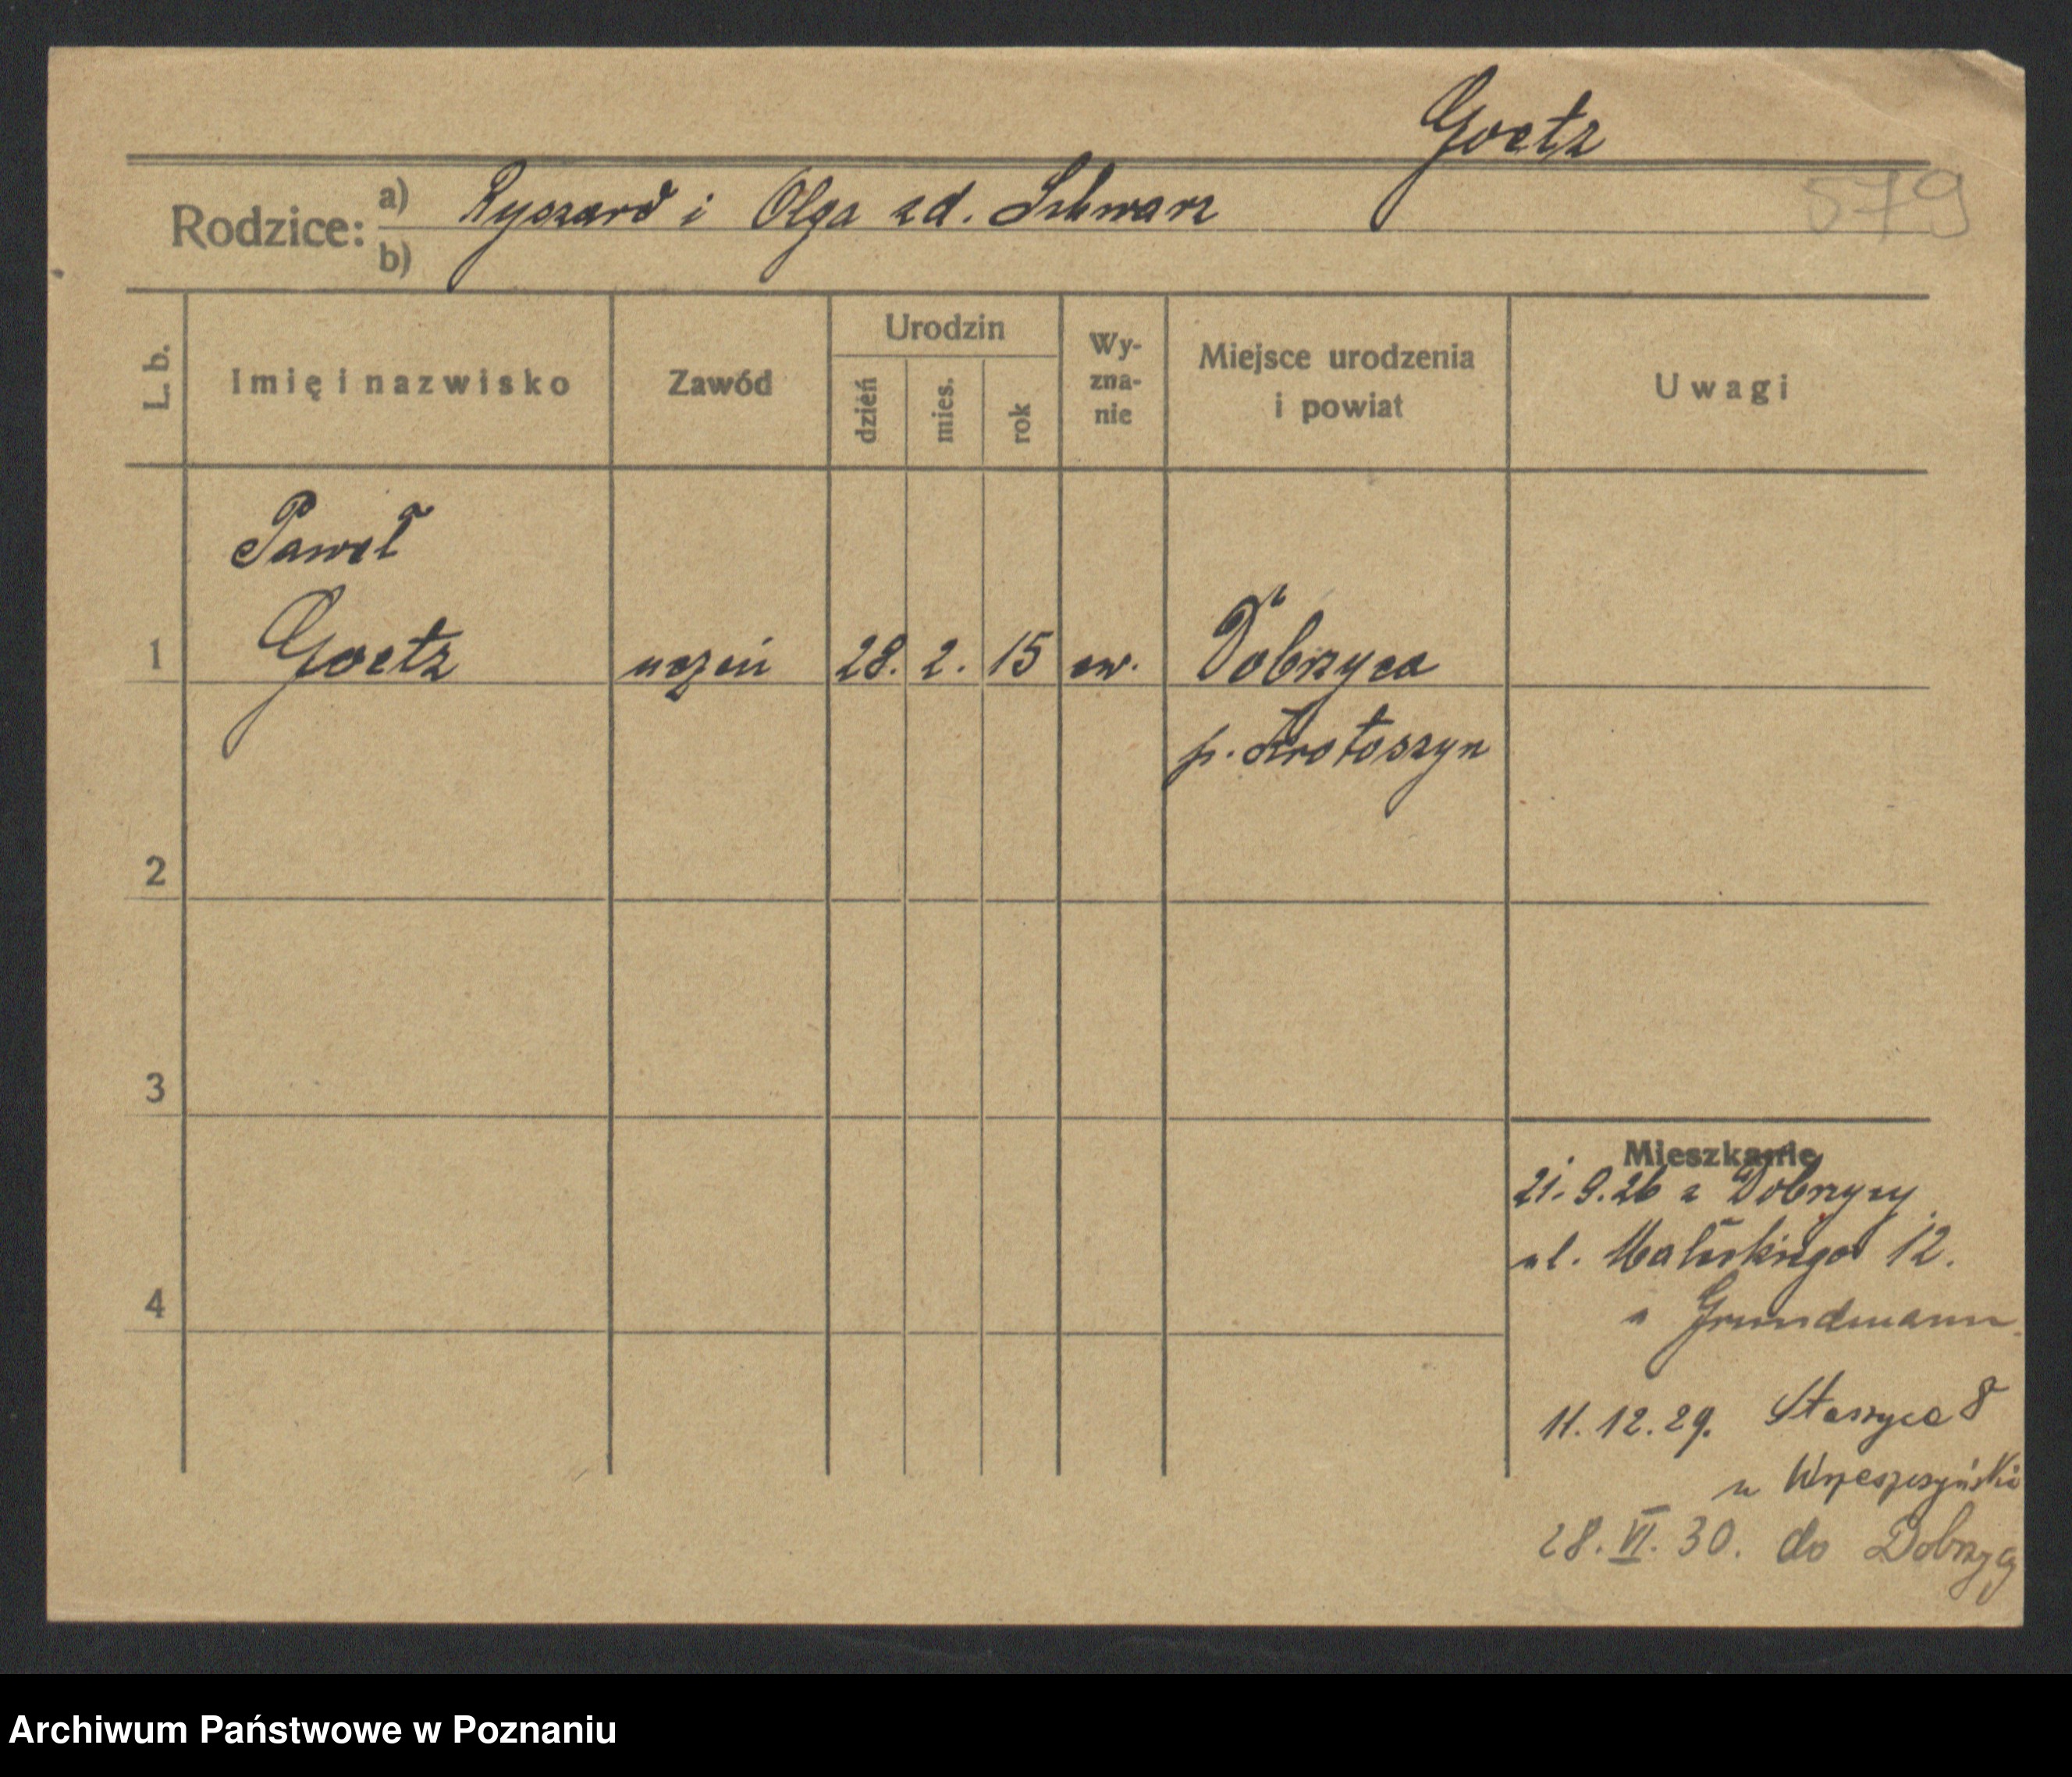 Goetz
579
Rodzice: a) Ryszard i Olga zd. Schwarz
b)
L. b.
Imię i nazwisko
Zawód
Urodzin
dzień
mies.
rok
Wy-
zna-
nie
Miejsce urodzenia
i powiat
Uwagi
Paweł
1 Goetz uczeń 28. 2. 15 ew. Dobrzyca
p. Krotoszyn
2
3
Mieszkanie
21. 9. 26 z Dobrzycy
ul. 12.
4
u Grundmann
11. 12. 29. Staszyca 8
u
28. VI. 30. do Dobrzycy
Archiwum Państwowe w Poznaniu